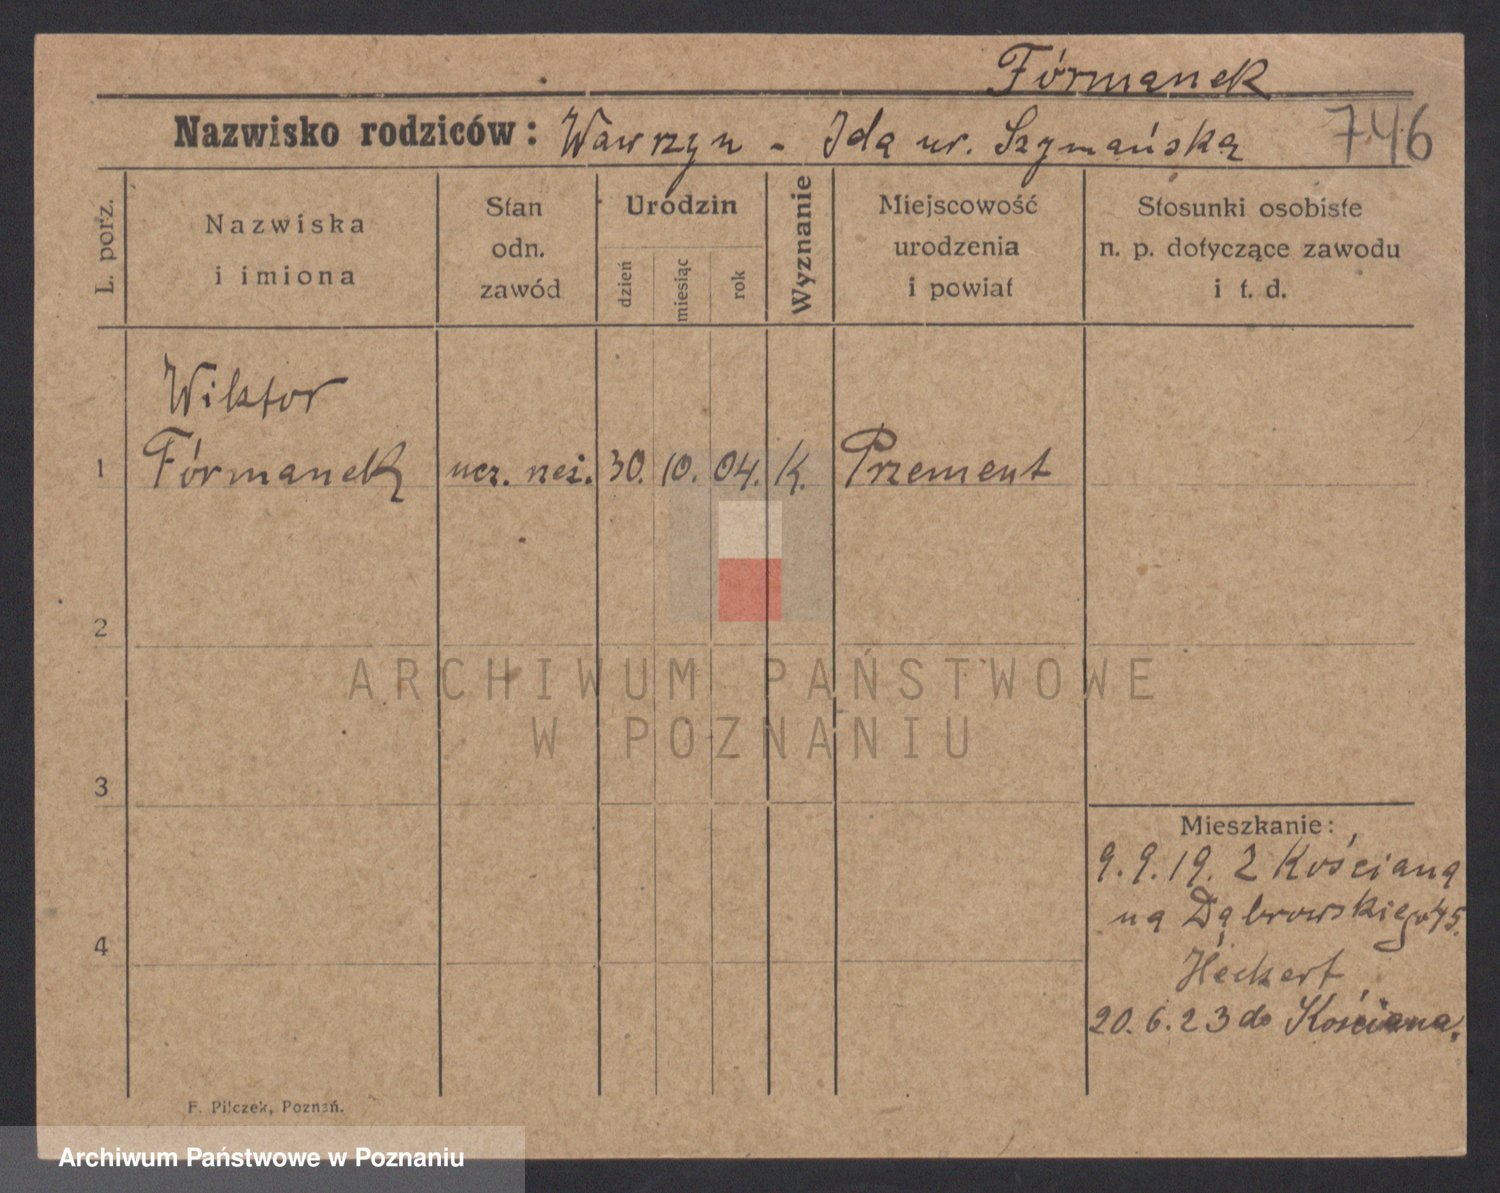 Fórmanek
Nazwisko rodziców: Wawrzyn - Ida ur. Szymańska 746
L. porz.
Nazwiska
i imiona
Stan
odn.
zawód
Urodzin
dzień
miesiąc
rok
Wyznanie
Miejscowość
urodzenia
i powiat
Stosunki osobiste
n. p. dotyczące zawodu
i t. d.
Wiktor
1 Fórmanek ucz. rzeź. 30. 10. 04. K. Przement
2
ARCHIWUM PAŃSTWOWE
W POZNANIU
3
Mieszkanie:
9.9.19. Z Kościana
na Dąbrowskiego 45.
Heckert
4
20.6.23 do Kościana.
F. Pilczek, Poznań.
Archiwum Państwowe w Poznaniu